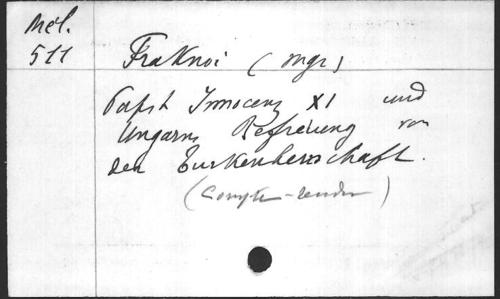 Mel.
511
Fraknoi (mgr)
Papst Innocenz XI und
Ungarns Befreiung von
den Turkenherrschaft.
(Compte-rendu)